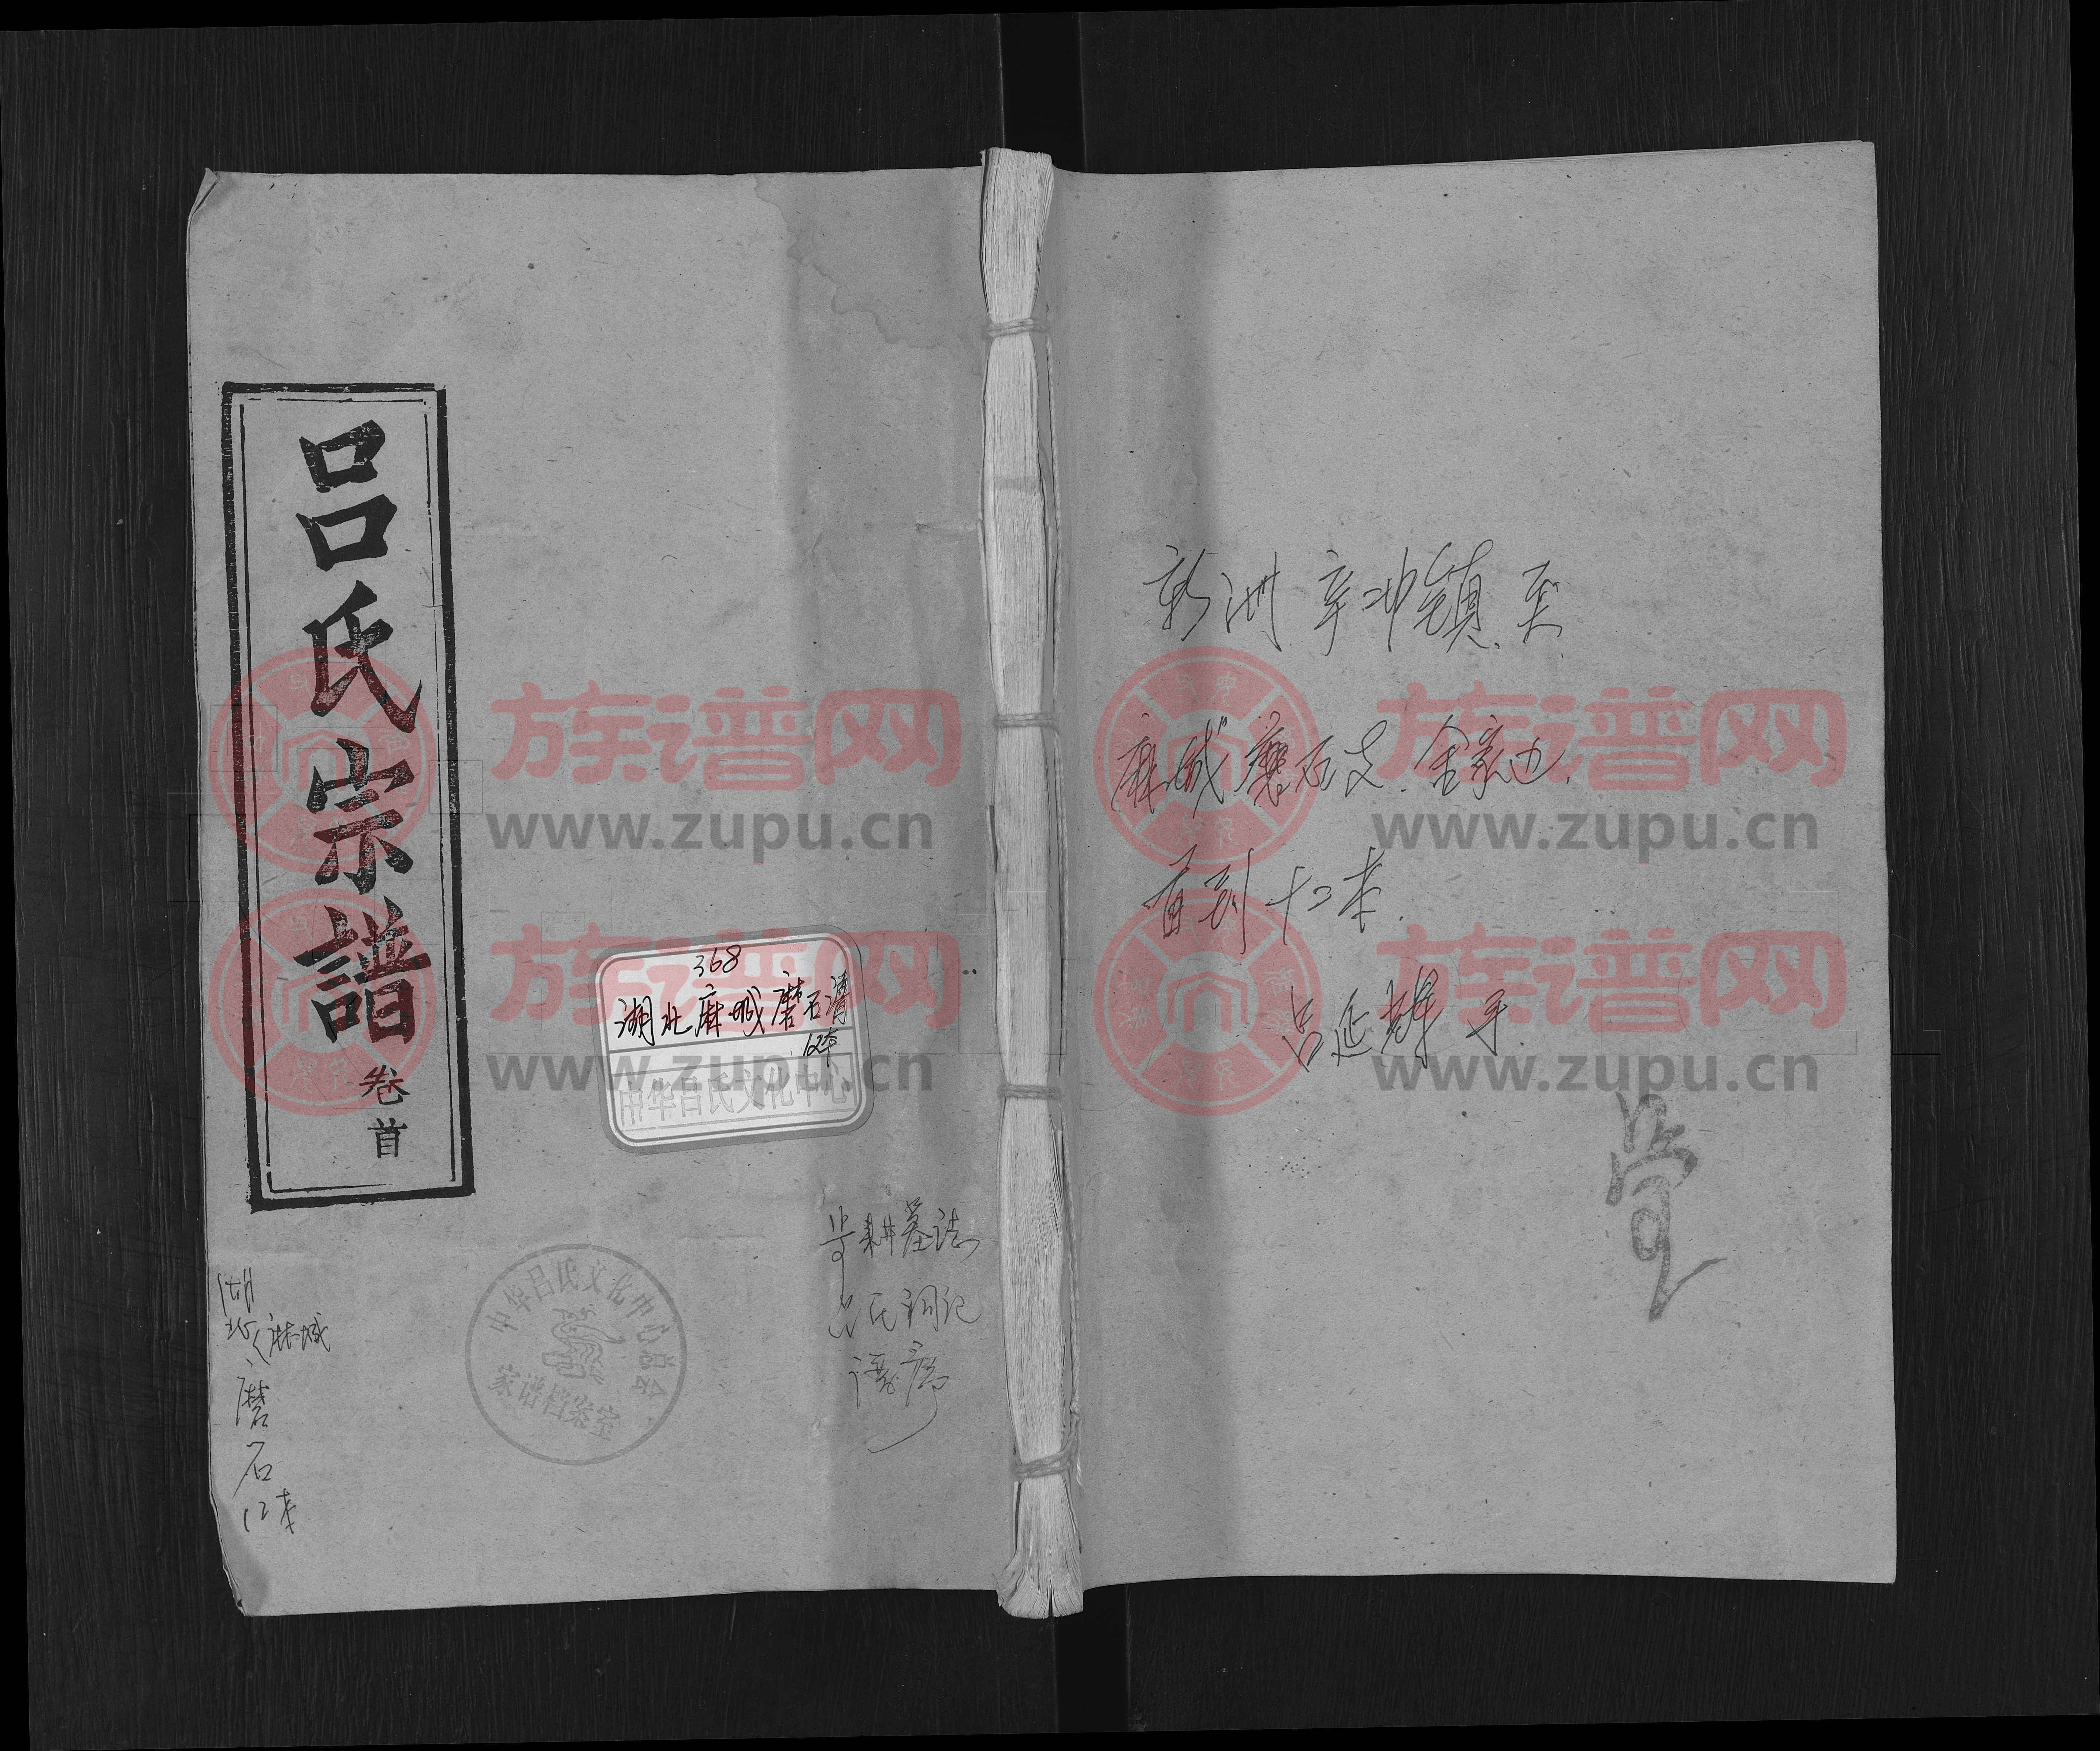 吕氏宗譜
卷首
368
湖北麻城磨石
12本
中华吕氏文化中心
中华吕氏文化中心总会
家谱档案室
耕墓志
吕氏祠记
谱序
湖北麻城
磨石
12本
新洲辛冲镇
麻城磨石
首到十二本
吕延辉
族谱网
www.zupu.cn
族谱网
www.zupu.cn
族谱网
www.zupu.cn
族谱网
www.zupu.cn